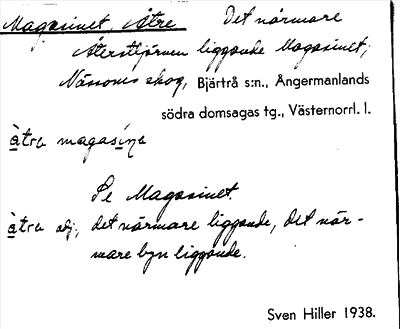 Magasinet, Åtre Det närmare
Återsttjärnen liggande Magasinet;
Näsoms skog, Bjärtrå s:n., Ångermanlands
södra domsagas tg., Västernorrl. l.
àtra magasína
Se Magasinet.
àtra adj., det närmare liggande, det när-
mare byn liggande.
Sven Hiller 1938.